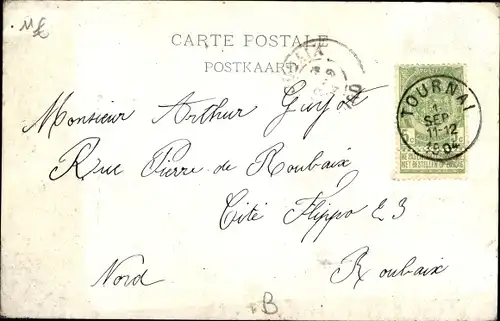 CARTE POSTALE
POSTKAART
TOURNAI
1
SEP
11-12
1904
Monsieur Arthur Guyot
Rue Pierre de Roubaix
Cité Flippo 23
Nord
Roubaix
B